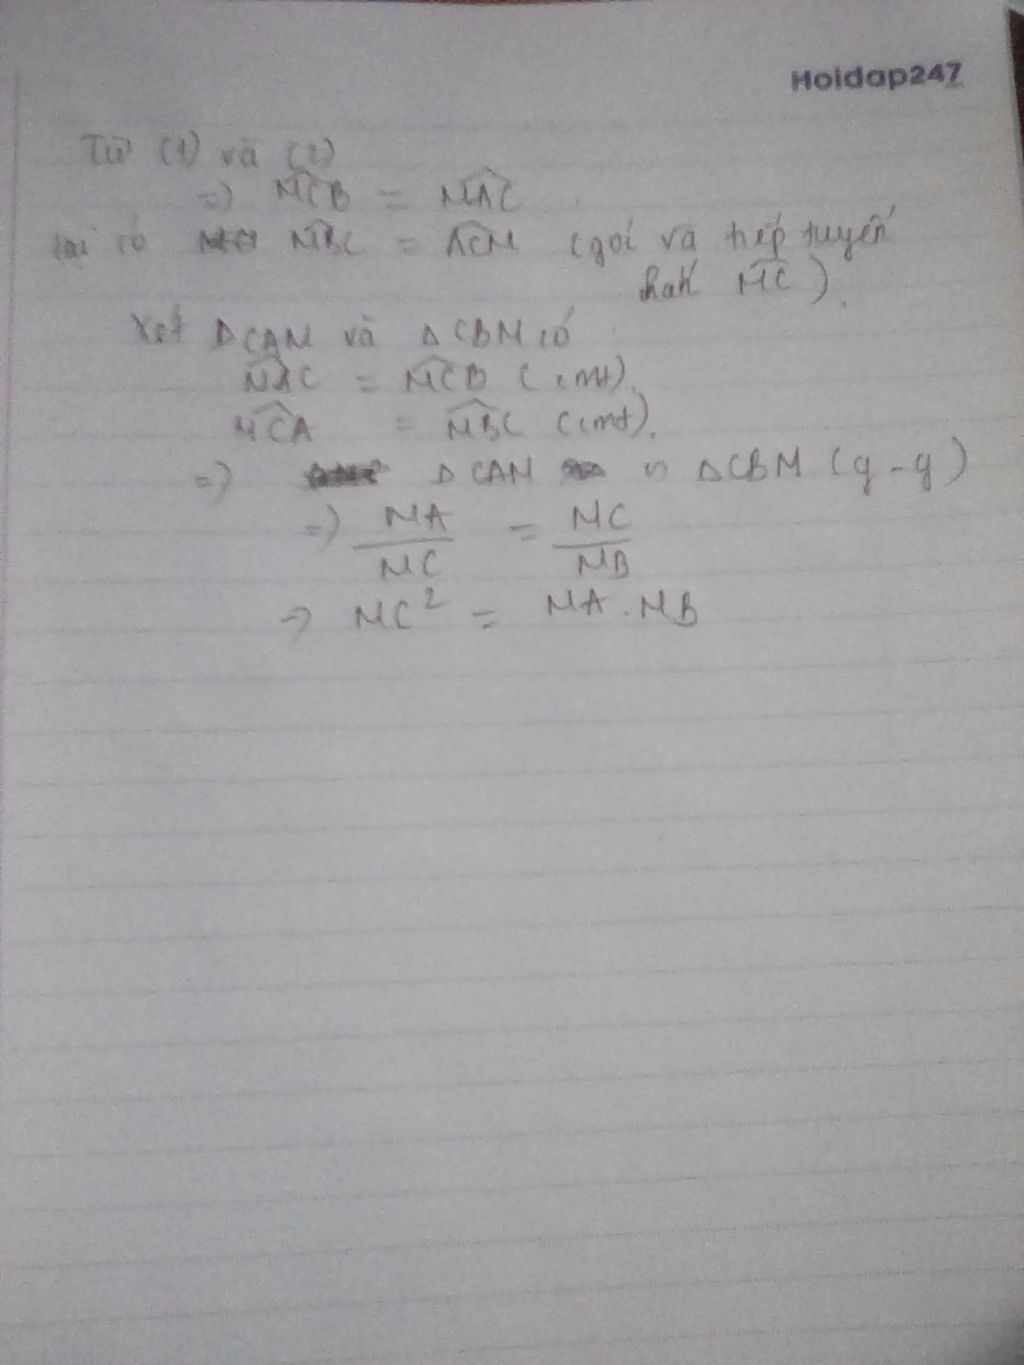 Hoidap247
Từ (1) và (2)
=) MCB = MAC
lại có MBC = ACM (gói và tiếp tuyến
MC).
Xét ΔCAM và ΔCBM có
MAC = MCB (cmt).
MCA = MBC (cmt).
=) ΔCAM ∽ ΔCBM (g-g)
=) MA/MC = MC/MB
=) MC² = MA.MB